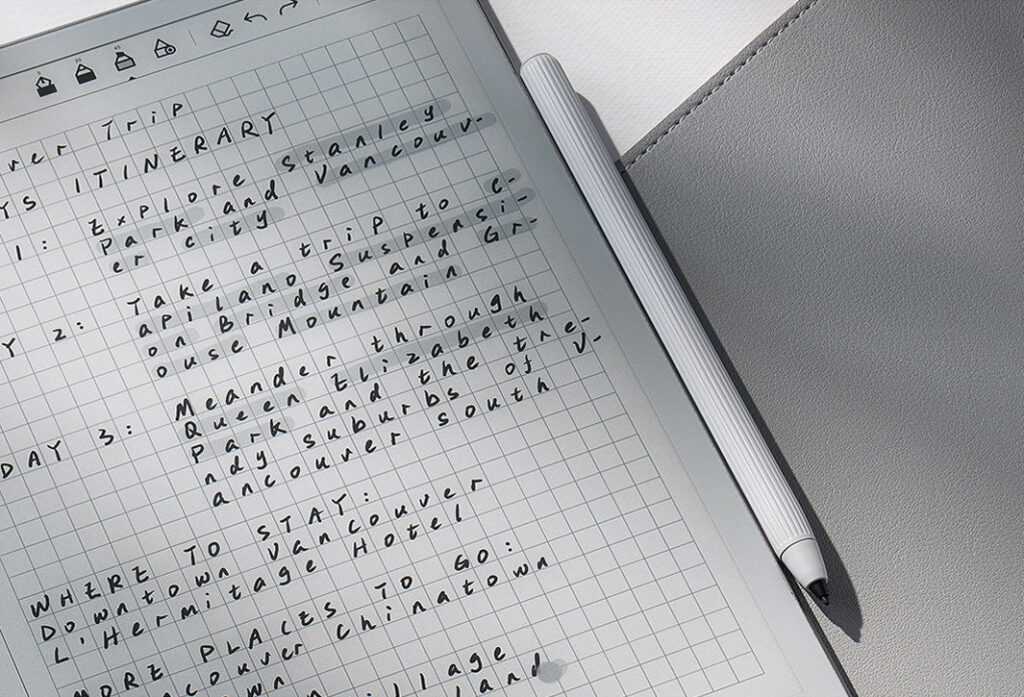 ver Trip
YS ITINERARY
1: Explore Stanley
Park and Vancouv-
er city
Y 2: Take a trip to C-
apilano Suspensi-
on Bridge and Gr-
ouse Mountain
DAY 3: Meander through
Queen Elizabeth
Park and the tre-
ndy suburbs of V-
ancouver south
WHERE TO STAY:
Downtown Vancouver
L'Hermitage Hotel
MORE PLACES TO GO:
couver Chinatown
wn
llage
land